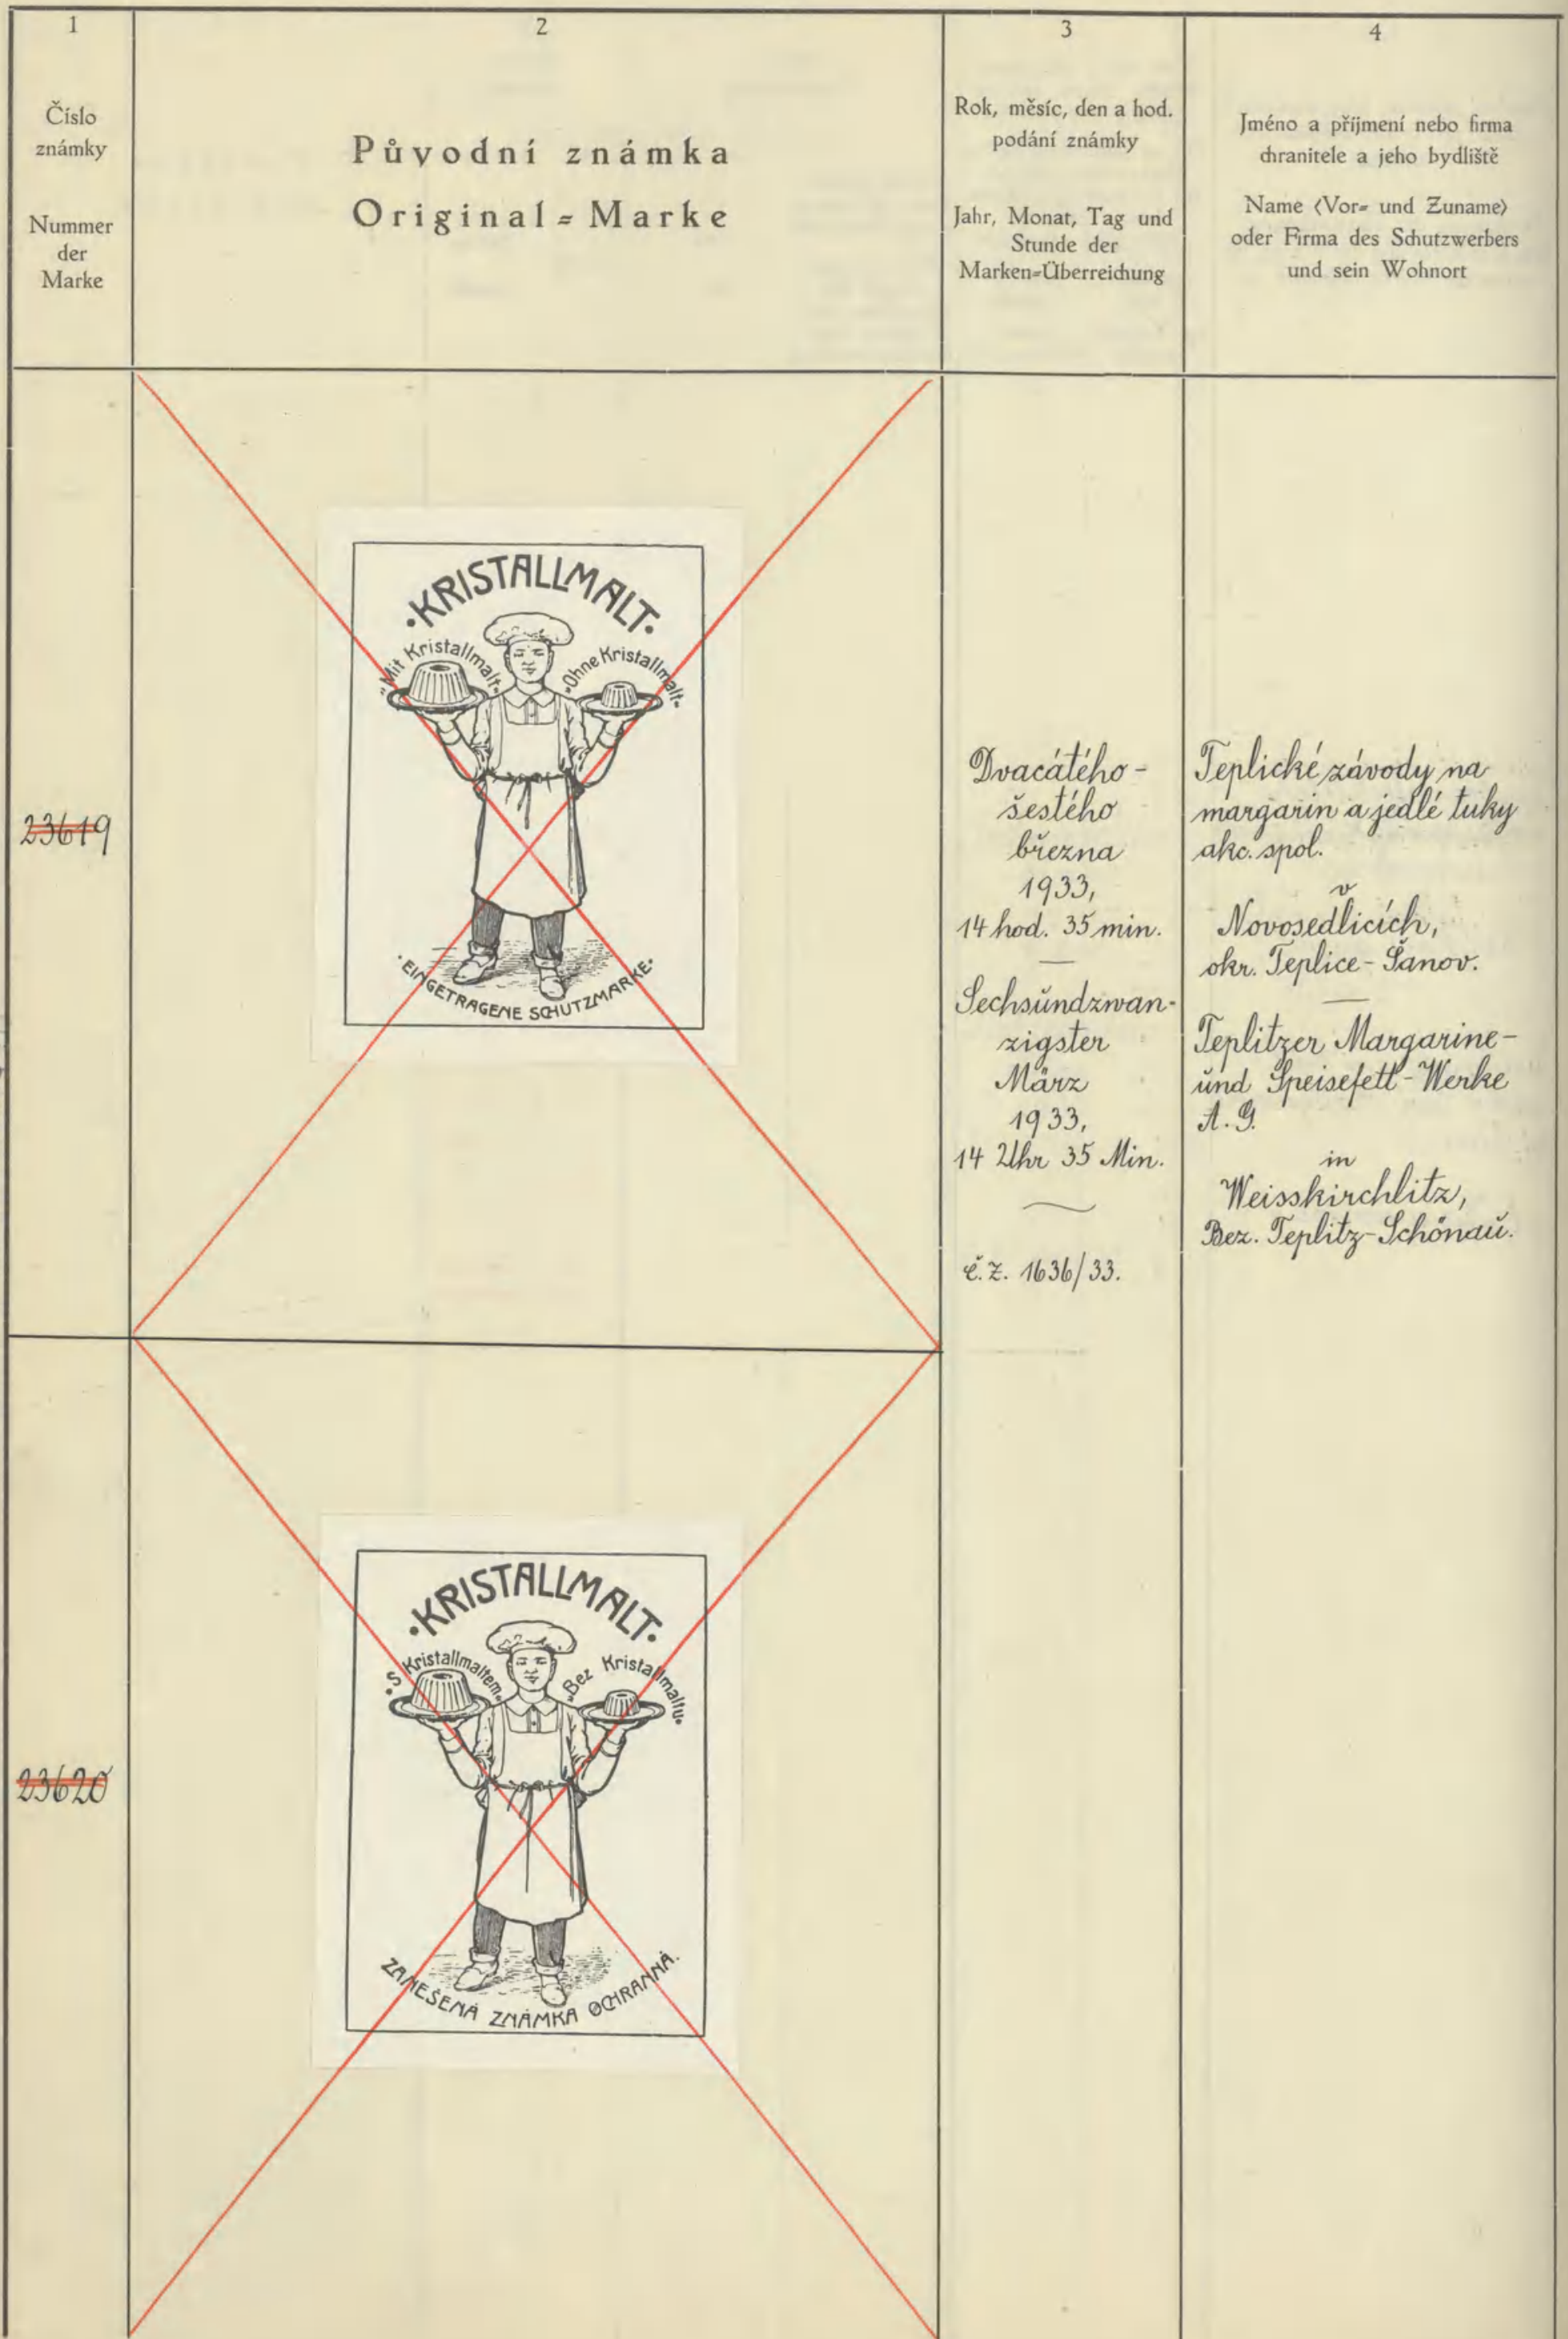 1
Číslo
známky
Nummer
der
Marke
2
Původní známka
Original-Marke
3
Rok, měsíc, den a hod.
podání známky
Jahr, Monat, Tag und
Stunde der
Marken-Überreichung
4
Jméno a příjmení nebo firma
chranitele a jeho bydliště
Name (Vor- und Zuname)
oder Firma des Schutzwerbers
und sein Wohnort
23619
·KRISTALLMALT·
"Mit Kristallmalt"
"Ohne Kristallmalt"
·EINGETRAGENE SCHUTZMARKE·
Dvacátého-
šestého
března
1933,
14 hod. 35 min.
Sechsundzwan-
zigster
März
1933,
14 Uhr 35 Min.
č.z. 1636/33.
Teplické závody na
margarin a jedlé tuky
akc. spol.
v
Novosedlicích,
okr. Teplice-Šanov.
Teplitzer Margarine-
und Speisefett-Werke
A.G.
in
Weisskirchlitz,
Bez. Teplitz-Schönau.
23620
·KRISTALLMALT·
"S Kristallmaltem"
"Bez Kristallmaltu"
ZANEŠENÁ ZNÁMKA OCHRANNÁ.